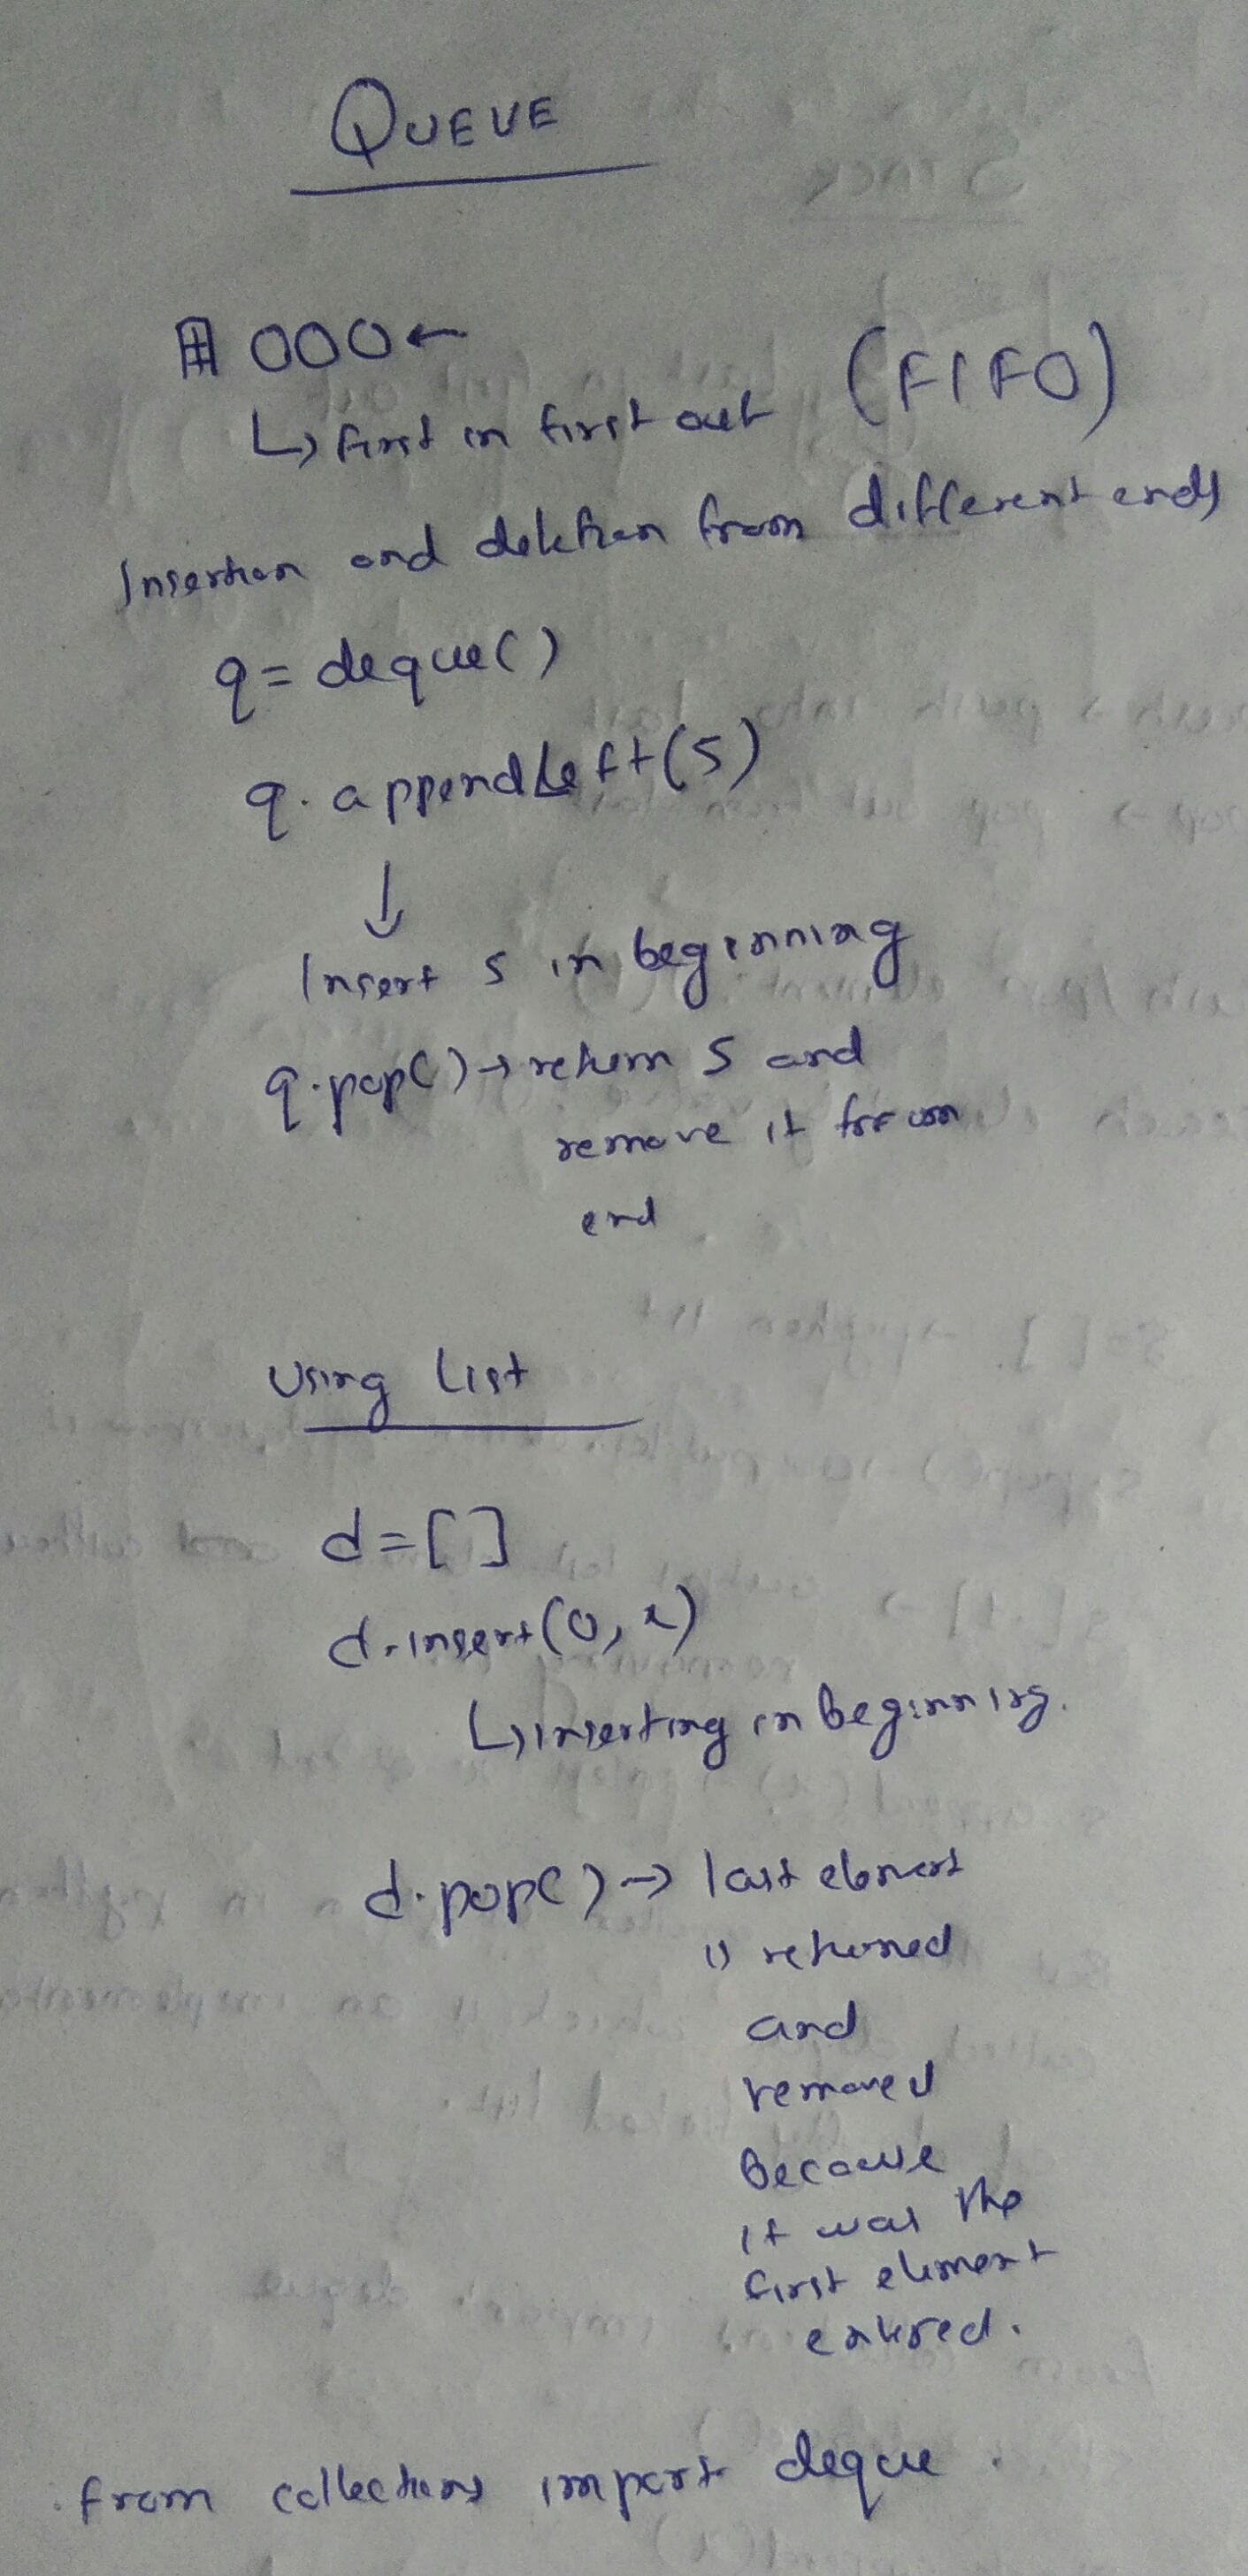 QUEUE
000←
↳ first in first out (FIFO)
Insertion and deletion from different ends
q = deque()
q.appendLeft(5)
↓
Insert 5 in beginning
q.pop() → return 5 and
remove it from
end
Using List
d = []
d.insert(0, x)
↳ inserting in beginning.
d.pop() → last element
is returned
and
removed
Because
it was the
first element
entered.
from collections import deque.